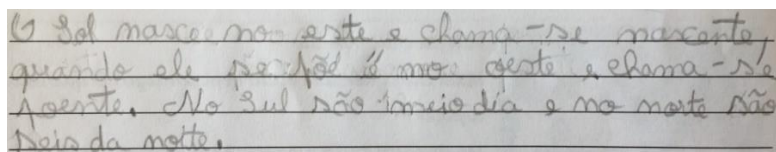 O Sol nasce no este e chama-se nascente,
quando ele se põe é no oeste e chama-se
poente. No Sul são meio dia e no norte são
seis da noite.